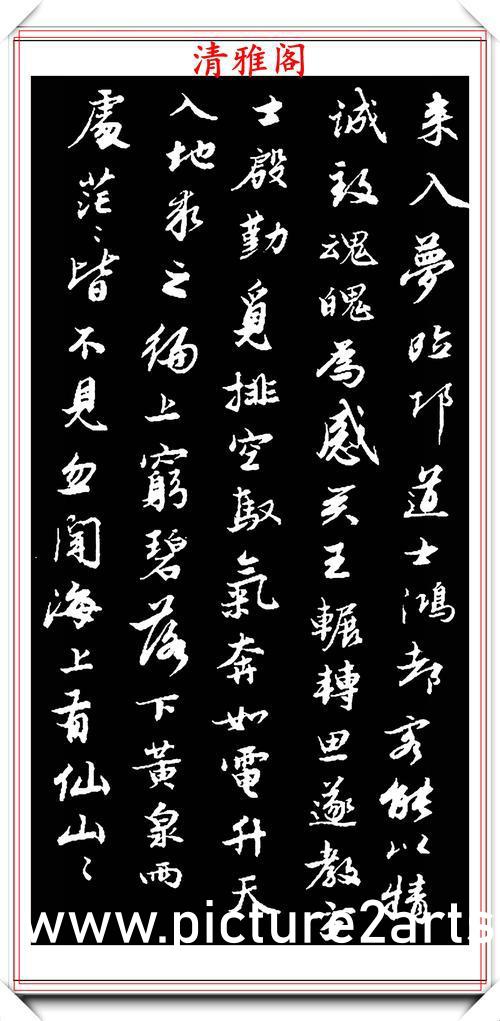 清雅阁
来入夢臨邛道士鴻都客能以精
誠致魂魄為感君王輾轉思遂教方
士殷勤覓排空馭氣奔如電升天
入地求之徧上窮碧落下黃泉兩
處茫〻皆不見忽聞海上有仙山〻
www.picture2arts